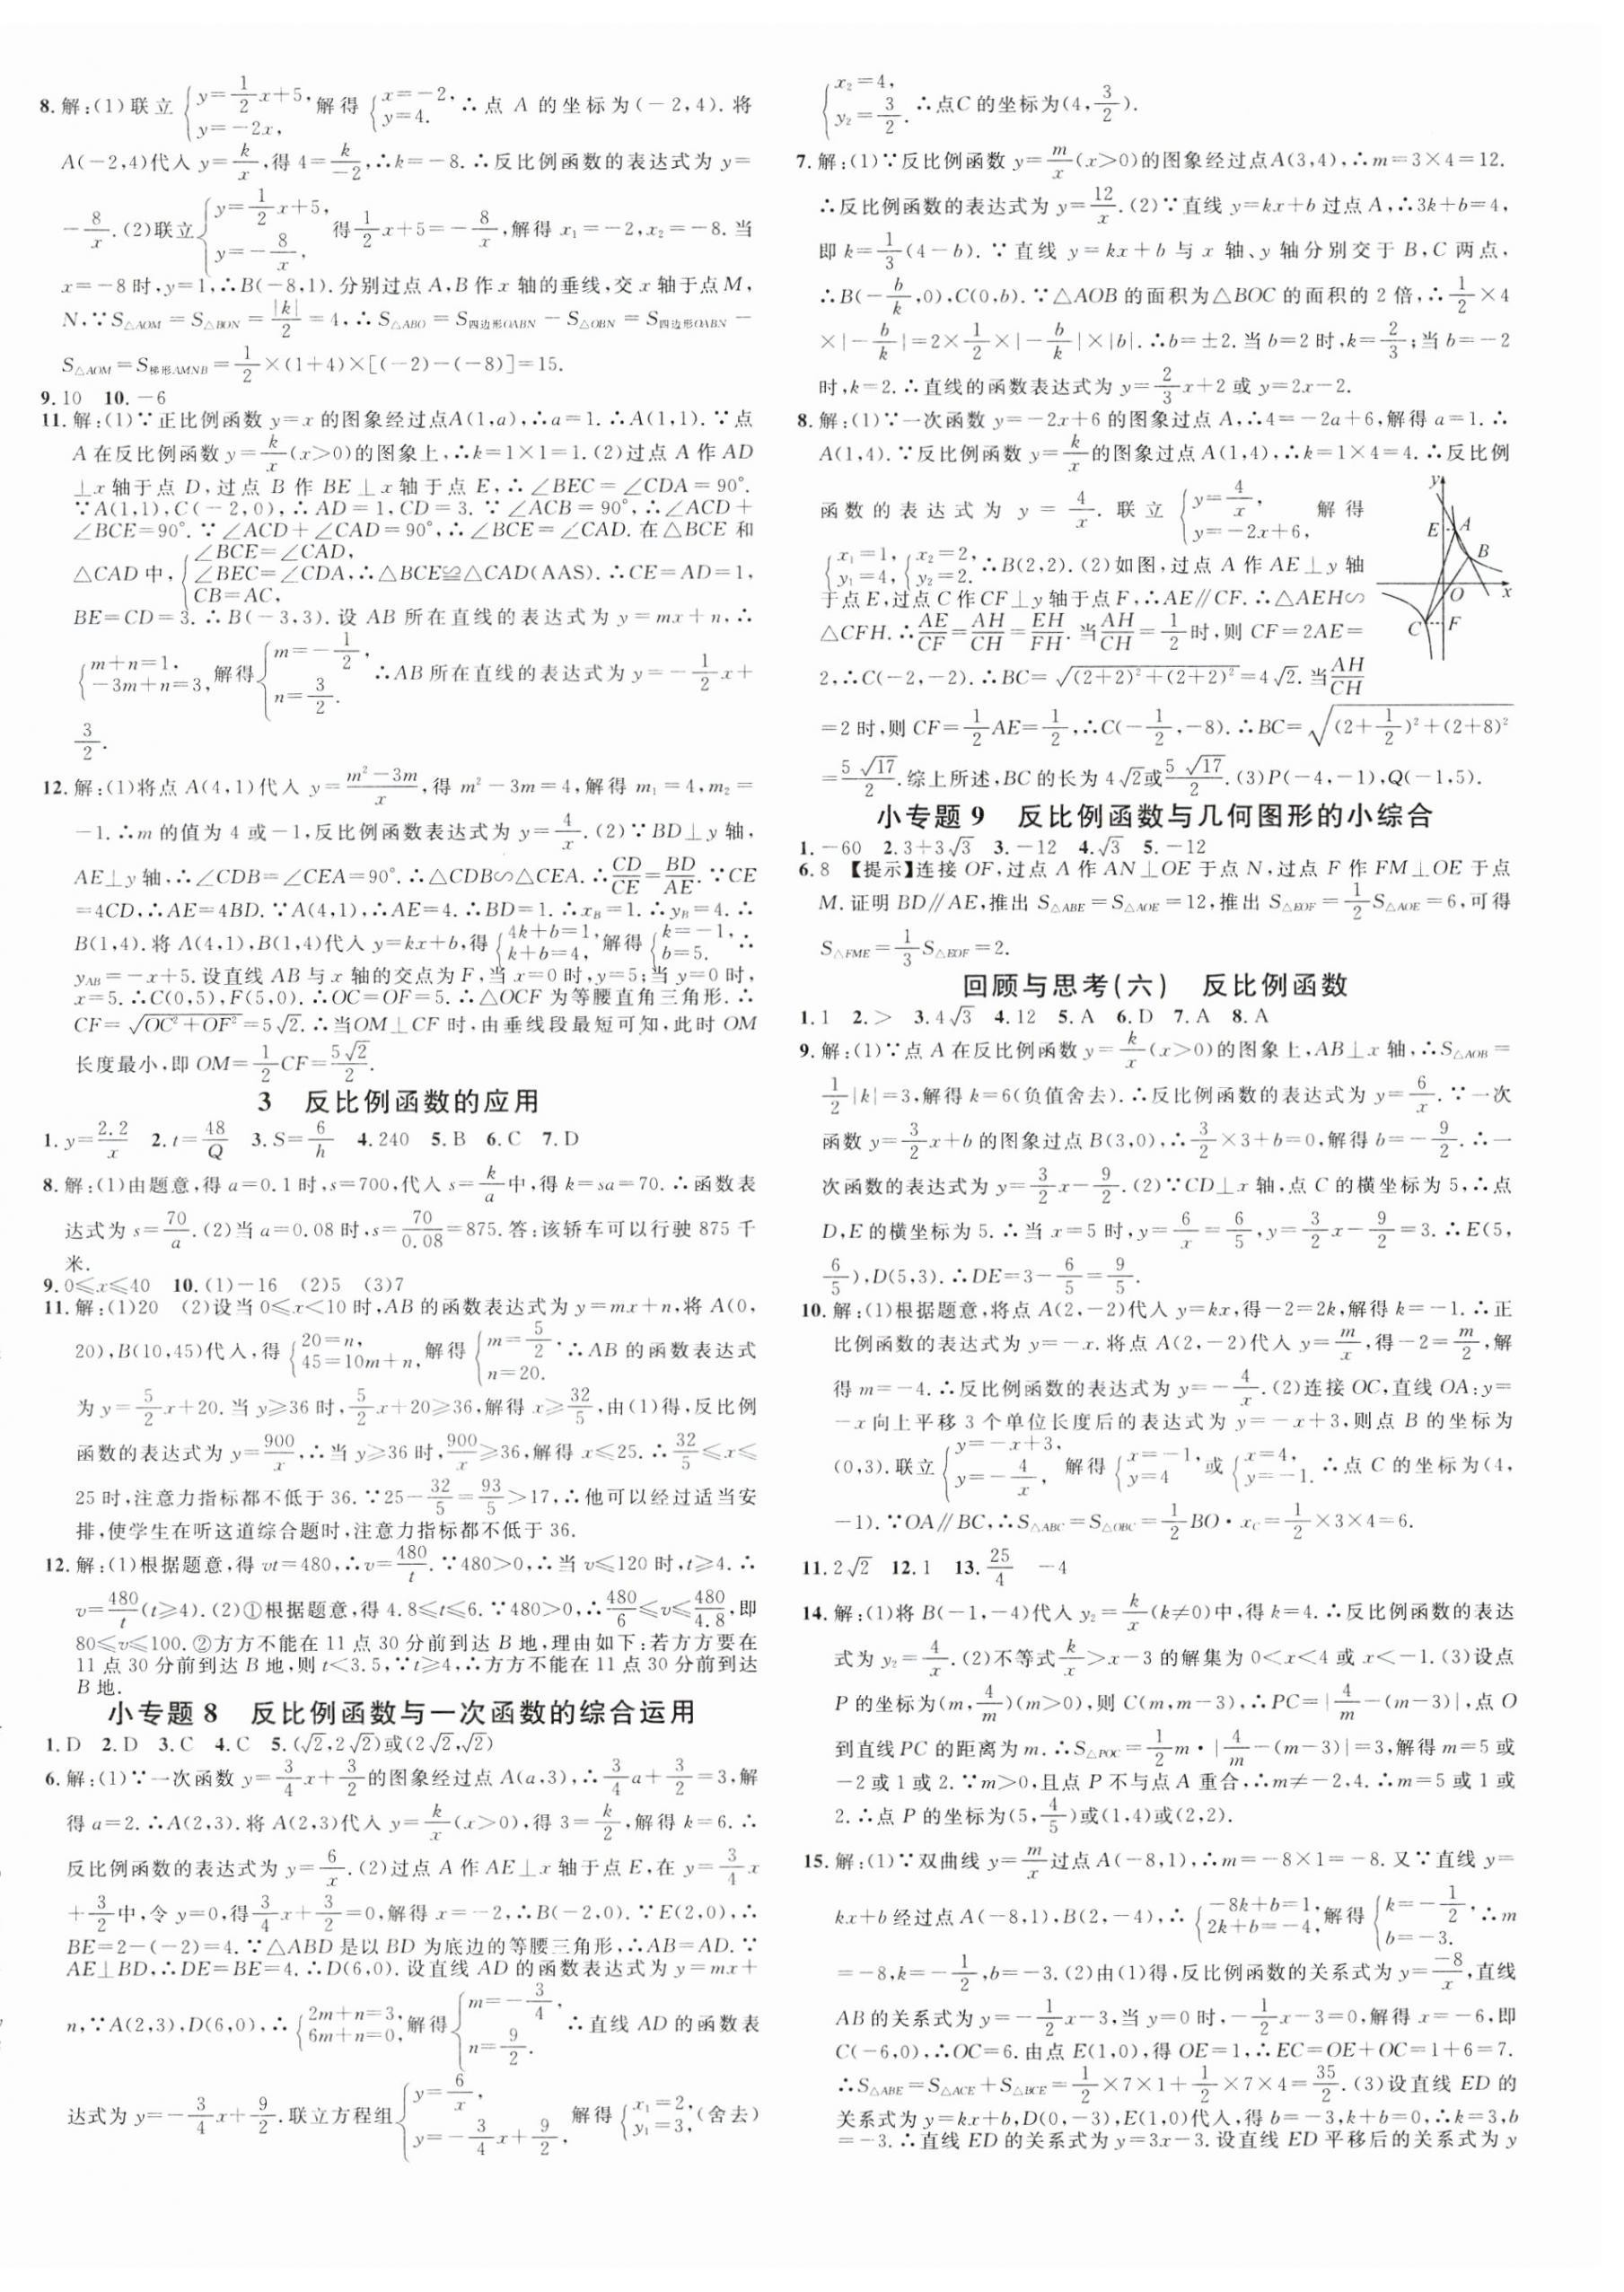 8.解:(1)联立{y=1/2x+5, y=-2x, 解得{x=-2, y=4. ∴点 A 的坐标为(-2,4).将
A(-2,4)代入 y=k/x,得 4=k/-2,∴k=-8.∴反比例函数的表达式为 y=
-8/x.(2)联立{y=1/2x+5, y=-8/x, 得1/2x+5=-8/x,解得 x₁=-2,x₂=-8.当
x=-8时,y=1,∴B(-8,1).分别过点 A,B 作 x 轴的垂线,交 x 轴于点 M,
N,∵S△AOM=S△BON=|k|/2=4,∴S△ABO=S四边形OABN-S△OBN=S四边形OABN-
S△AOM=S梯形AMNB=1/2×(1+4)×[(-2)-(-8)]=15.
9.10 10.-6
11.解:(1)∵正比例函数 y=x 的图象经过点A(1,a),∴a=1.∴A(1,1).∵点
A 在反比例函数 y=k/x(x>0)的图象上,∴k=1×1=1.(2)过点 A 作 AD
⊥x 轴于点 D,过点 B 作 BE⊥x 轴于点 E,∴∠BEC=∠CDA=90°.
∵A(1,1),C(-2,0),∴AD=1,CD=3.∵∠ACB=90°,∴∠ACD+
∠BCE=90°.∵∠ACD+∠CAD=90°,∴∠BCE=∠CAD.在△BCE 和
△CAD 中,{∠BCE=∠CAD, ∠BEC=∠CDA, CB=AC, ∴△BCE≌△CAD(AAS).∴CE=AD=1,
BE=CD=3.∴B(-3,3).设 AB 所在直线的表达式为 y=mx+n,∴
{m+n=1, -3m+n=3, 解得{m=-1/2, n=3/2. ∴AB 所在直线的表达式为 y=-1/2x+
3/2.
12.解:(1)将点 A(4,1)代入 y=m²-3m/x,得 m²-3m=4,解得 m₁=4,m₂=
-1.∴m 的值为 4 或-1,反比例函数表达式为 y=4/x.(2)∵BD⊥y 轴,
AE⊥y 轴,∴∠CDB=∠CEA=90°.∴△CDB∽△CEA.∴CD/CE=BD/AE.∵CE
=4CD,∴AE=4BD.∵A(4,1),∴AE=4.∴BD=1.∴x_B=1.∴y_B=4.∴
B(1,4).将 A(4,1),B(1,4)代入 y=kx+b,得{4k+b=1, k+b=4, 解得{k=-1, b=5. ∴
y_AB=-x+5.设直线 AB 与 x 轴的交点为 F,当 x=0 时,y=5;当 y=0 时,
x=5.∴C(0,5),F(5,0).∴OC=OF=5.∴△OCF 为等腰直角三角形.∴
CF=√(OC²+OF²)=5√2.∴当OM⊥CF 时,由垂线段最短可知,此时 OM
长度最小,即 OM=1/2CF=5√2/2.
3 反比例函数的应用
1.y=2.2/x 2.t=48/Q 3.S=6/h 4.240 5.B 6.C 7.D
8.解:(1)由题意,得 a=0.1时,s=700,代入 s=k/a中,得 k=sa=70.∴函数表
达式为 s=70/a.(2)当 a=0.08 时,s=70/0.08=875.答:该轿车可以行驶 875 千
米.
9.0≤x≤40 10.(1)-16 (2)5 (3)7
11.解:(1)20 (2)设当 0≤x<10 时,AB 的函数表达式为 y=mx+n,将 A(0,
20),B(10,45)代入,得{20=n, 45=10m+n, 解得{m=5/2, n=20. ∴AB 的函数表达式
为 y=5/2x+20.当 y≥36 时,5/2x+20≥36,解得 x≥32/5,由(1)得,反比例
函数的表达式为 y=900/x,∴当 y≥36 时,900/x≥36,解得 x≤25.∴32/5≤x≤
25 时,注意力指标都不低于 36.∵25-32/5=93/5>17,∴他可以经过适当安
排,使学生在听这道综合题时,注意力指标都不低于 36.
12.解:(1)根据题意,得 vt=480,∴v=480/t.∵480>0,∴当 v≤120 时,t≥4.∴
v=480/t(t≥4).(2)①根据题意,得 4.8≤t≤6.∵480>0,∴480/6≤v≤480/4.8,即
80≤v≤100.②方方不能在 11 点 30 分前到达 B 地,理由如下:若方方要在
11 点 30 分前到达 B 地,则 t<3.5,∵t≥4,∴方方不能在 11 点 30 分前到达
B 地.
小专题 8 反比例函数与一次函数的综合运用
1.D 2.D 3.C 4.C 5.(√2,2√2)或(2√2,√2)
6.解:(1)∵一次函数 y=3/4x+3/2的图象经过点 A(a,3),∴3/4a+3/2=3,解
得 a=2.∴A(2,3).将 A(2,3)代入 y=k/x(x>0),得 3=k/2,解得 k=6.∴
反比例函数的表达式为 y=6/x.(2)过点 A 作 AE⊥x 轴于点 E,在 y=3/4x
+3/2中,令 y=0,得3/4x+3/2=0,解得 x=-2,∴B(-2,0).∵E(2,0),∴
BE=2-(-2)=4.∵△ABD 是以 BD 为底边的等腰三角形,∴AB=AD.∵
AE⊥BD,∴DE=BE=4.∴D(6,0).设直线 AD 的函数表达式为 y=mx+
n,∵A(2,3),D(6,0),∴{2m+n=3, 6m+n=0, 解得{m=-3/4, n=9/2. ∴直线 AD 的函数表
达式为 y=-3/4x+9/2.联立方程组{y=6/x, y=-3/4x+9/2, 解得{x₁=2, y₁=3, (舍去)
{x₂=4, y₂=3/2. ∴点C 的坐标为(4,3/2).
7.解:(1)∵反比例函数 y=m/x(x>0)的图象经过点A(3,4),∴m=3×4=12.
∴反比例函数的表达式为 y=12/x.(2)∵直线 y=kx+b 过点 A,∴3k+b=4,
即 k=1/3(4-b).∵直线 y=kx+b 与 x 轴、y 轴分别交于 B,C 两点,
∴B(-b/k,0),C(0,b).∵△AOB 的面积为△BOC 的面积的 2 倍,∴1/2×4
×|-b/k|=2×1/2×|-b/k|×|b|.∴b=±2.当 b=2 时,k=2/3;当 b=-2
时,k=2.∴直线的函数表达式为 y=2/3x+2 或 y=2x-2.
8.解:(1)∵一次函数 y=-2x+6 的图象过点 A,∴4=-2a+6,解得 a=1.∴
A(1,4).∵反比例函数 y=k/x的图象过点 A(1,4),∴k=1×4=4.∴反比例
函数的表达式为 y=4/x.联立{y=4/x, y=-2x+6, 解得
{x₁=1, y₁=4, {x₂=2, y₂=2. ∴B(2,2).(2)如图,过点 A 作 AE⊥y 轴
于点 E,过点 C 作 CF⊥y 轴于点 F,∴AE∥CF.∴△AEH∽
△CFH.∴AE/CF=AH/CH=EH/FH.当AH/CH=1/2时,则 CF=2AE=
2,∴C(-2,-2).∴BC=√((2+2)²+(2+2)²)=4√2.当AH/CH
y
E
A
B
O
x
C
F
=2 时,则 CF=1/2AE=1/2,∴C(-1/2,-8).∴BC=√((2+1/2)²+(2+8)²)
=5√17/2.综上所述,BC 的长为 4√2或5√17/2.(3)P(-4,-1),Q(-1,5).
小专题 9 反比例函数与几何图形的小综合
1.-60 2.3+3√3 3.-12 4.√3 5.-12
6.8 【提示】连接 OF,过点 A 作 AN⊥OE 于点 N,过点 F 作 FM⊥OE 于点
M.证明 BD∥AE,推出 S△ABE=S△AOE=12,推出 S△EOF=1/2S△AOE=6,可得
S△FME=1/3S△EOF=2.
回顾与思考(六) 反比例函数
1.1 2.> 3.4√3 4.12 5.A 6.D 7.A 8.A
9.解:(1)∵点 A 在反比例函数 y=k/x(x>0)的图象上,AB⊥x 轴,∴S△AOB=
1/2|k|=3,解得 k=6(负值舍去).∴反比例函数的表达式为 y=6/x.∵一次
函数 y=3/2x+b 的图象过点 B(3,0),∴3/2×3+b=0,解得 b=-9/2.∴一
次函数的表达式为 y=3/2x-9/2.(2)∵CD⊥x 轴,点 C 的横坐标为 5,∴点
D,E 的横坐标为 5.∴当 x=5 时,y=6/x=6/5,y=3/2x-9/2=3.∴E(5,
6/5),D(5,3).∴DE=3-6/5=9/5.
10.解:(1)根据题意,将点 A(2,-2)代入 y=kx,得-2=2k,解得 k=-1.∴正
比例函数的表达式为 y=-x.将点 A(2,-2)代入 y=m/x,得-2=m/2,解
得 m=-4.∴反比例函数的表达式为 y=-4/x.(2)连接 OC,直线 OA:y=
-x 向上平移 3 个单位长度后的表达式为 y=-x+3,则点 B 的坐标为
(0,3).联立{y=-x+3, y=-4/x, 解得{x=-1, y=4 或{x=4, y=-1. ∴点 C 的坐标为(4,
-1).∵OA∥BC,∴S△ABC=S△OBC=1/2BO·x_C=1/2×3×4=6.
11.2√2 12.1 13.25/4 -4
14.解:(1)将 B(-1,-4)代入 y₂=k/x(k≠0)中,得 k=4.∴反比例函数的表达
式为 y₂=4/x.(2)不等式k/x>x-3 的解集为 0<x<4 或 x<-1.(3)设点
P 的坐标为(m,4/m)(m>0),则 C(m,m-3),∴PC=|4/m-(m-3)|,点 O
到直线 PC 的距离为 m.∴S△POC=1/2m·|4/m-(m-3)|=3,解得 m=5 或
-2 或 1 或 2.∵m>0,且点 P 不与点 A 重合,∴m≠-2,4.∴m=5 或 1 或
2.∴点 P 的坐标为(5,4/5)或(1,4)或(2,2).
15.解:(1)∵双曲线 y=m/x过点 A(-8,1),∴m=-8×1=-8.又∵直线 y=
kx+b 经过点 A(-8,1),B(2,-4),∴{-8k+b=1, 2k+b=-4, 解得{k=-1/2, b=-3. ∴m
=-8,k=-1/2,b=-3.(2)由(1)得,反比例函数的关系式为 y=-8/x,直线
AB 的关系式为 y=-1/2x-3,当 y=0 时,-1/2x-3=0,解得 x=-6,即
C(-6,0),∴OC=6.由点 E(1,0),得 OE=1,∴EC=OE+OC=1+6=7.
∴S△ABE=S△ACE+S△BCE=1/2×7×1+1/2×7×4=35/2.(3)设直线 ED 的
关系式为 y=kx+b,D(0,-3),E(1,0)代入,得 b=-3,k+b=0,∴k=3,b
=-3.∴直线 ED 的关系式为 y=3x-3.设直线 ED 平移后的关系式为 y